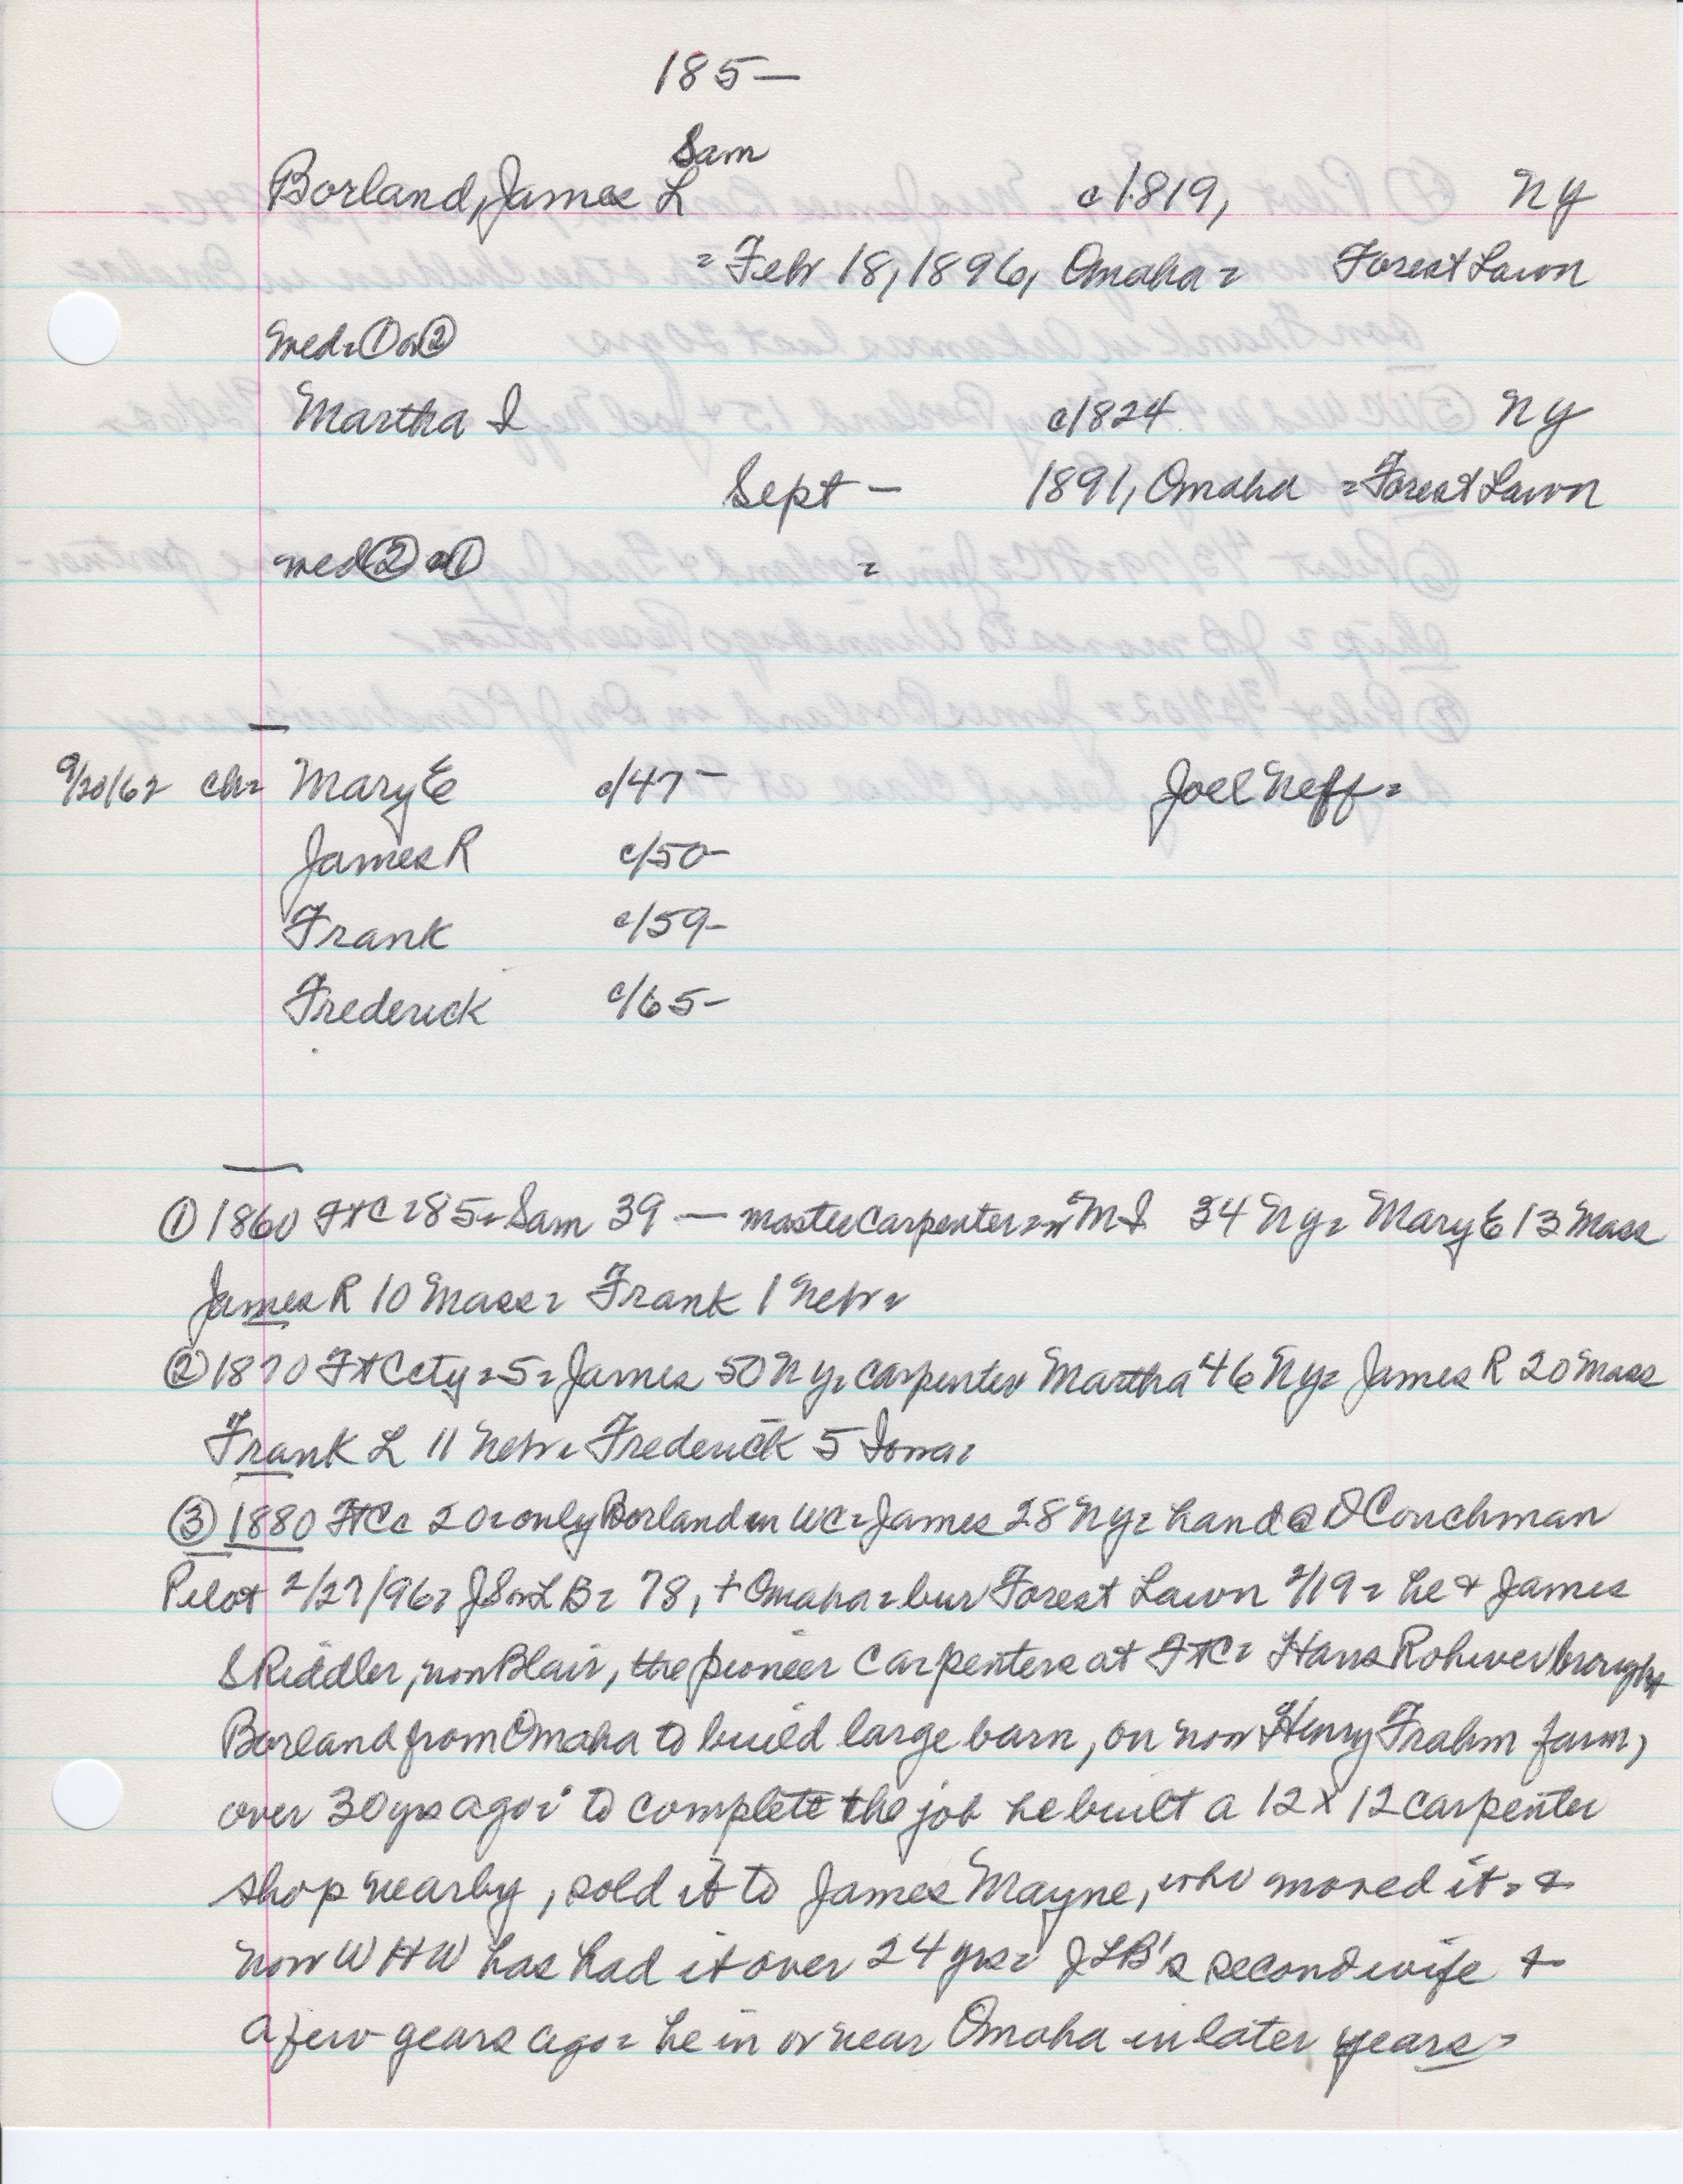 185—
Sam
Borland, James L c1819, NY
= Febr 18, 1896, Omaha = Forest Lawn
med = ① or ②
Martha S c1824 NY
Sept — 1891, Omaha = Forest Lawn
med ② or ① =
9/20/62 ch = Mary E c/47 — Joel Neff =
James R c/50 —
Frank c/59 —
Frederick c/65 —
① 1860 FtC = 85 = Sam 39 — master carpenter = M S 34 Ny = Mary E 13 Mass
James R 10 Mass = Frank 1 Nebr =
② 1870 FtC cty = 5 = James 50 Ny = carpenter Martha 46 Ny = James R 20 Mass
Frank L 11 Nebr = Frederick 5 Iowa =
③ 1880 FtC = 20 = only Borland in WC = James 28 Ny = hand @ D Couchman
Pilot 2/27/96 = J S or L B = 78, + Omaha = bur Forest Lawn 2/19 = he & James
S Riddler, now Blair, the pioneer carpenters at FtC = Hans Rohwer brought
Borland from Omaha to build large barn, on now Henry Frahm farm,
over 30 yrs ago = to complete the job he built a 12 x 12 carpenter
shop nearby, sold it to James Mayne, who moved it = &
now W H W has had it over 24 yrs = JLB's second wife +
a few years ago = he in or near Omaha in later years =